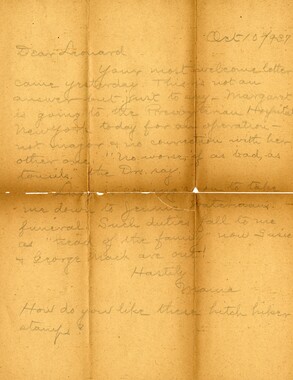 Oct 10 1927
Dear Leonard
Your most welcome letter
came yesterday. This is not an
answer but just to say - Margaret
is going to the Presbyterian Hospital
New York today for an operation -
not major & no connection with her
other one. "No worse, if as bad, as
tonsils," the Drs. say.
to take
me down to
funeral. Such duties fall to me
as "head of the family" now Susie
& George Mack are out!
Hastily
How do you like these hitch hiker
stamps?